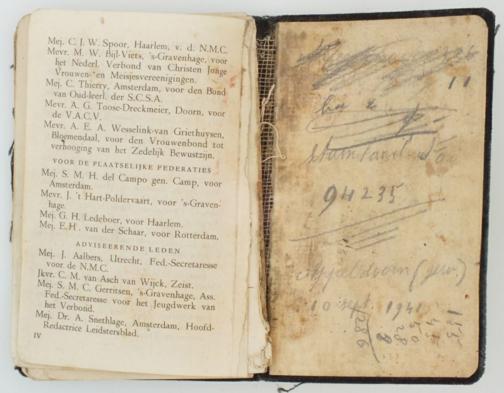 Mej. C. J. W. Spoor, Haarlem, v. d. N.M.C.
Mevr. M. W. Bijl-Viets, 's-Gravenhage, voor
het Nederl. Verbond van Christen Jonge
Vrouwen- en Meisjesvereenigingen.
Mej. C. Thierry, Amsterdam, voor den Bond
van Oud-leerl. der S.C.S.A.
Mevr. A. G. Toose-Dreckmeier, Doorn, voor
de V.A.C.V.
Mevr. A. E. A. Wesselink-van Griethuysen,
Bloemendaal, voor den Vrouwenbond tot
verhooging van het Zedelijk Bewustzijn.
VOOR DE PLAATSELIJKE FEDERATIES
Mej. S. M. H. del Campo gen. Camp, voor
Amsterdam.
Mevr. J. 't Hart-Poldervaart, voor 's-Graven-
hage.
Mej. G. H. Ledeboer, voor Haarlem.
Mej. E.H. van der Schaar, voor Rotterdam.
ADVISEERENDE LEDEN
Mej. J. Aalbers, Utrecht, Fed.-Secretaresse
voor de N.M.C.
Jkvr. C. M. van Asch van Wijck, Zeist.
Mej. S. M. C. Gerritsen, 's-Gravenhage, Ass.
Fed.-Secretaresse voor het Jeugdwerk van
het Verbond.
Mej. Dr. A. Snethlage, Amsterdam, Hoofd-
Redactrice Leidstersblad.
IV
11
94235
Apeldoorn
10 sept. 1941
286
28